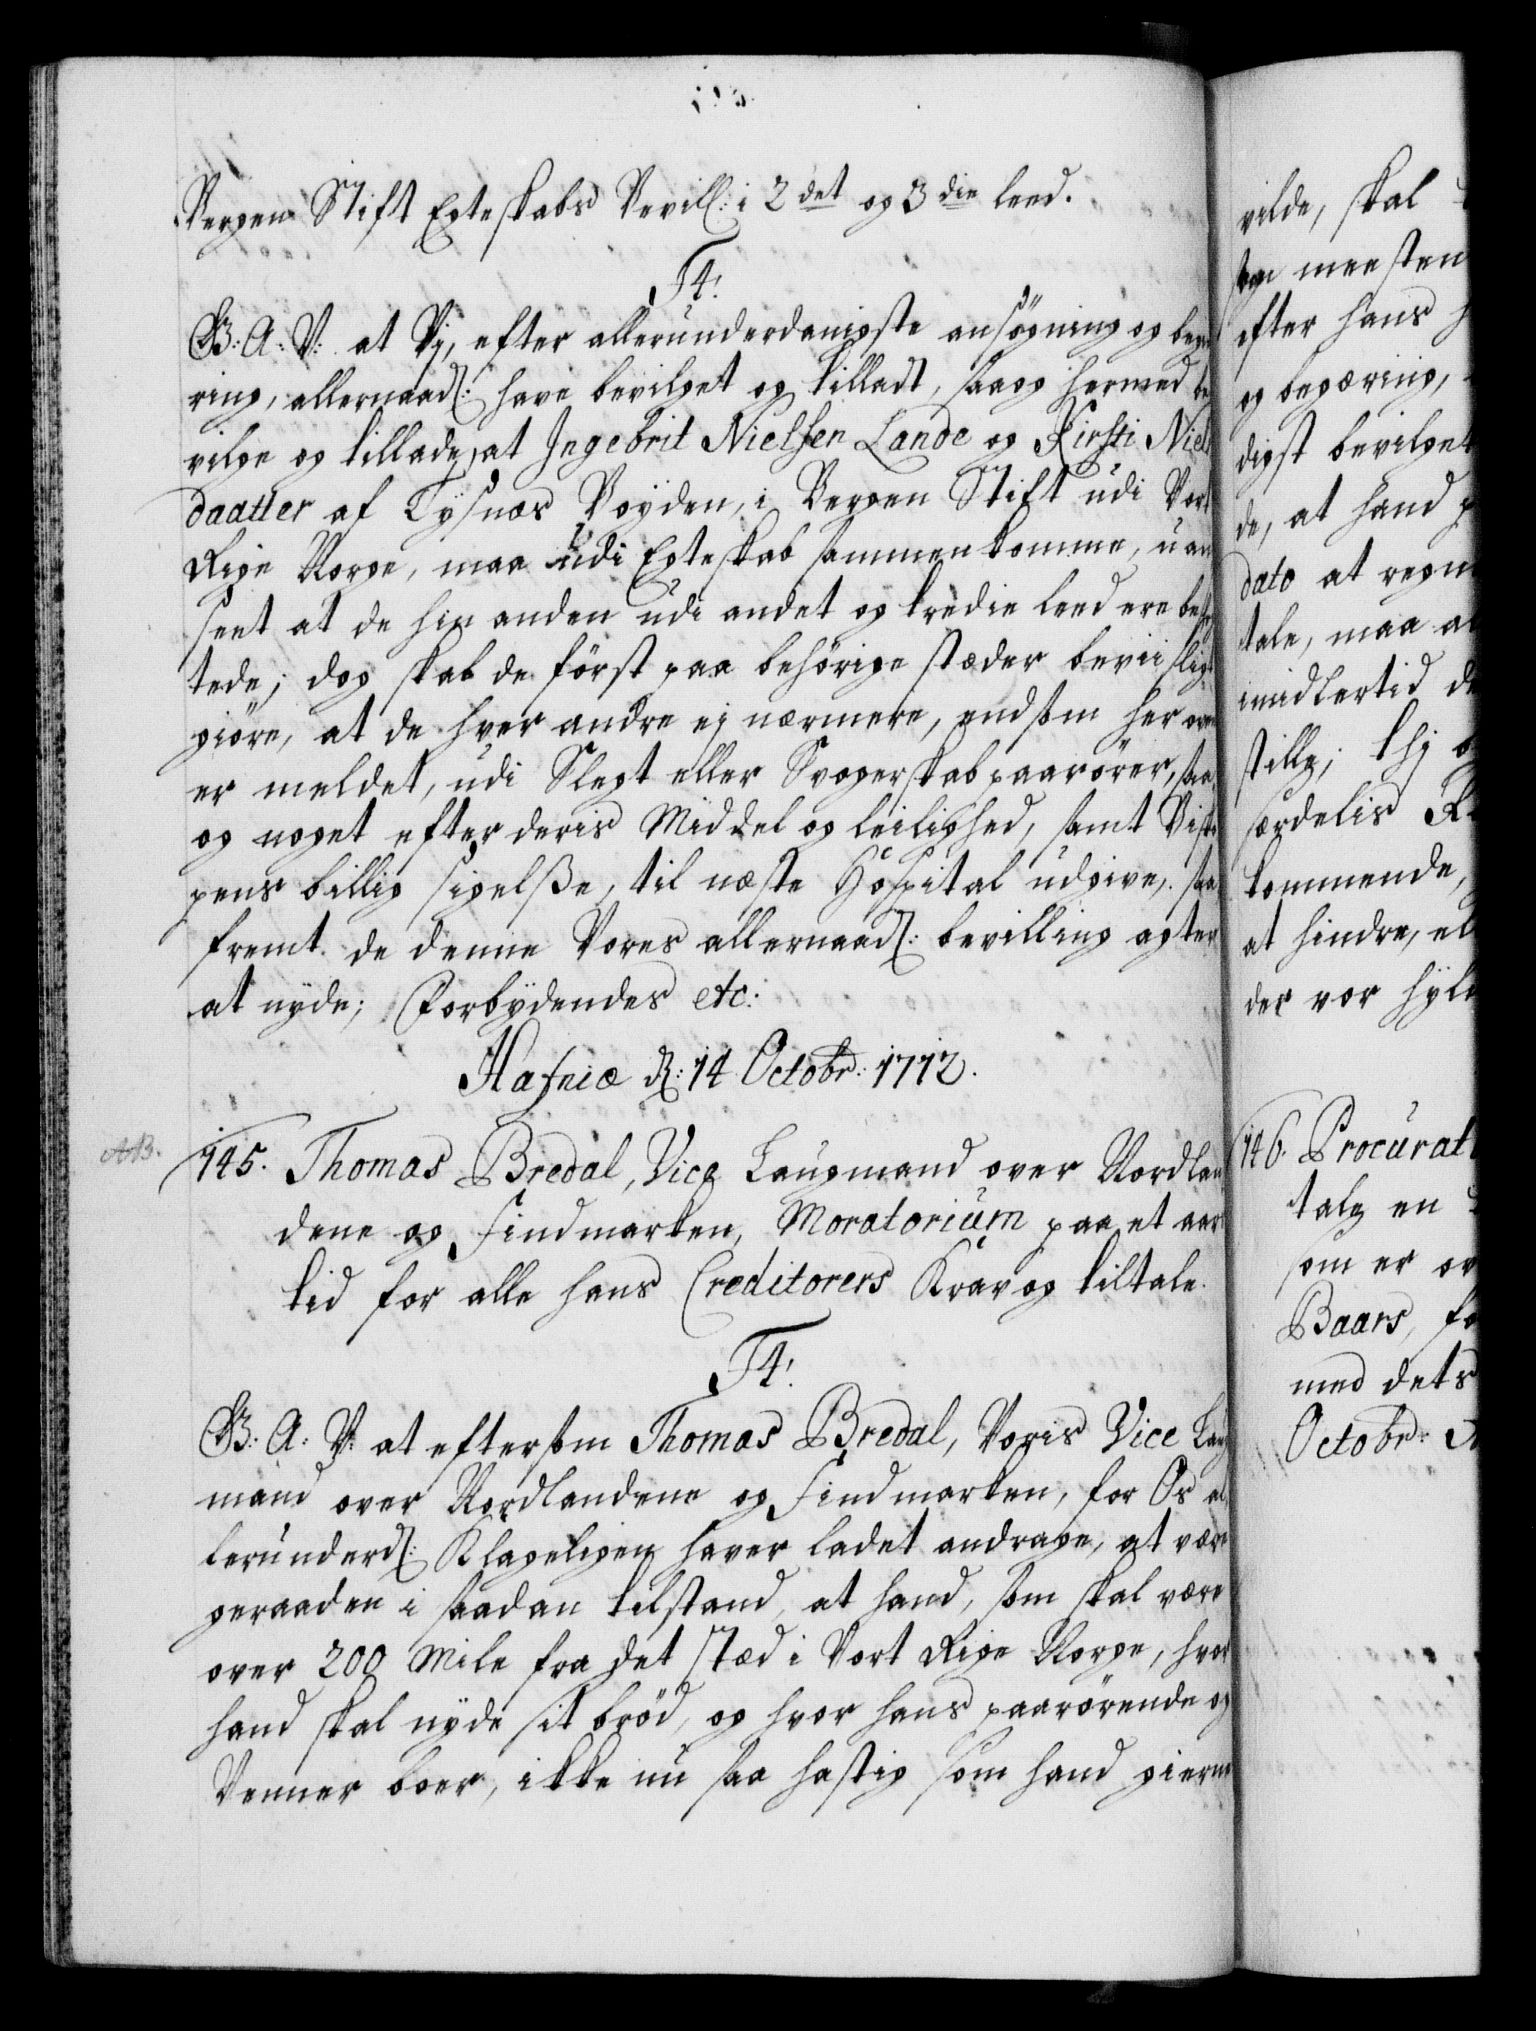 Bergens Stift Egteskabs Bevill: i 2det og 3die leed.
F4.
G: A: V: at Vj, efter allerunderdanigste ansøgning og begæ
ring, allernaad: have bevilget og tilladt, saa og hermed be
vilge og tillade, at Jngebrit Nielsen Lande og Kirsti Niels
daatter af Tysnæs Bøyden, i Bergen Stift udi Vort
Rige Norge, maa udi Egteskab sammenkomme, uan
seet at de hin anden udi andet og tredie leed ere beslæg
tede; dog skal de först paa behörige stæder beviislig
giöre, at de hver andre ej nærmere, end som her oven
er meldet, udi Slegt eller Svogerskab paarörer, saa
og noget efter deris Middel og leilighed, samt Bis
pens billig sigelße, til næste Hospital udgive, saa
fremt de denne Vores allernaad: bevilling agter
at nyde; Forbydendes etc:
Hafniæ d: 14 Octobr: 1712.
AB.
145. Thomas Bredal, Vice Laugmand over Nordlan
dene og Findmarken, Moratorium paa et aars
tid for alle hans Creditorers Krav og tiltale.
F4.
G: A: V: at eftersom Thomas Bredal, Voris Vice Laug
mand over Nordlandene og Findmarken, for Os al
lerunderd: Klageligen haver ladet andrage, at være
geraaden i saadan tilstand, at hand, som skal være
over 200 Mile fra det stæd i Vort Rige Norge, hvor
hand skal nyde sit bröd, og hvor hans paarörende og
Venner boer, ikke nu saa hastig som hand gierne
vilde, skal
meesten
efter hans
og begæring,
digst bevilget
de, at hand
dato at regne
tale, maa
imidlertid
stille; thj
særdelis
kommende,
at hindre,
der vor
146. Procurat
tale en
som er
Baars,
med dets
Octobr: